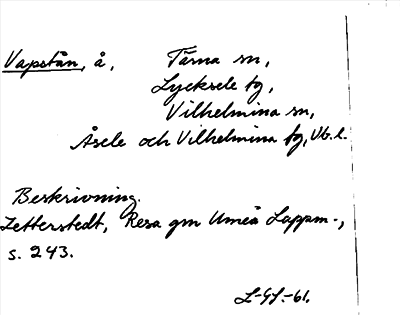 Vapstån, å, Tärna sn,
Lycksele tg,
Vilhelmina sn,
Åsele och Vilhelmina tg, Vb. l.
Beskrivning.
Zetterstedt, Resa gm Umeå Lappm.,
s. 243.